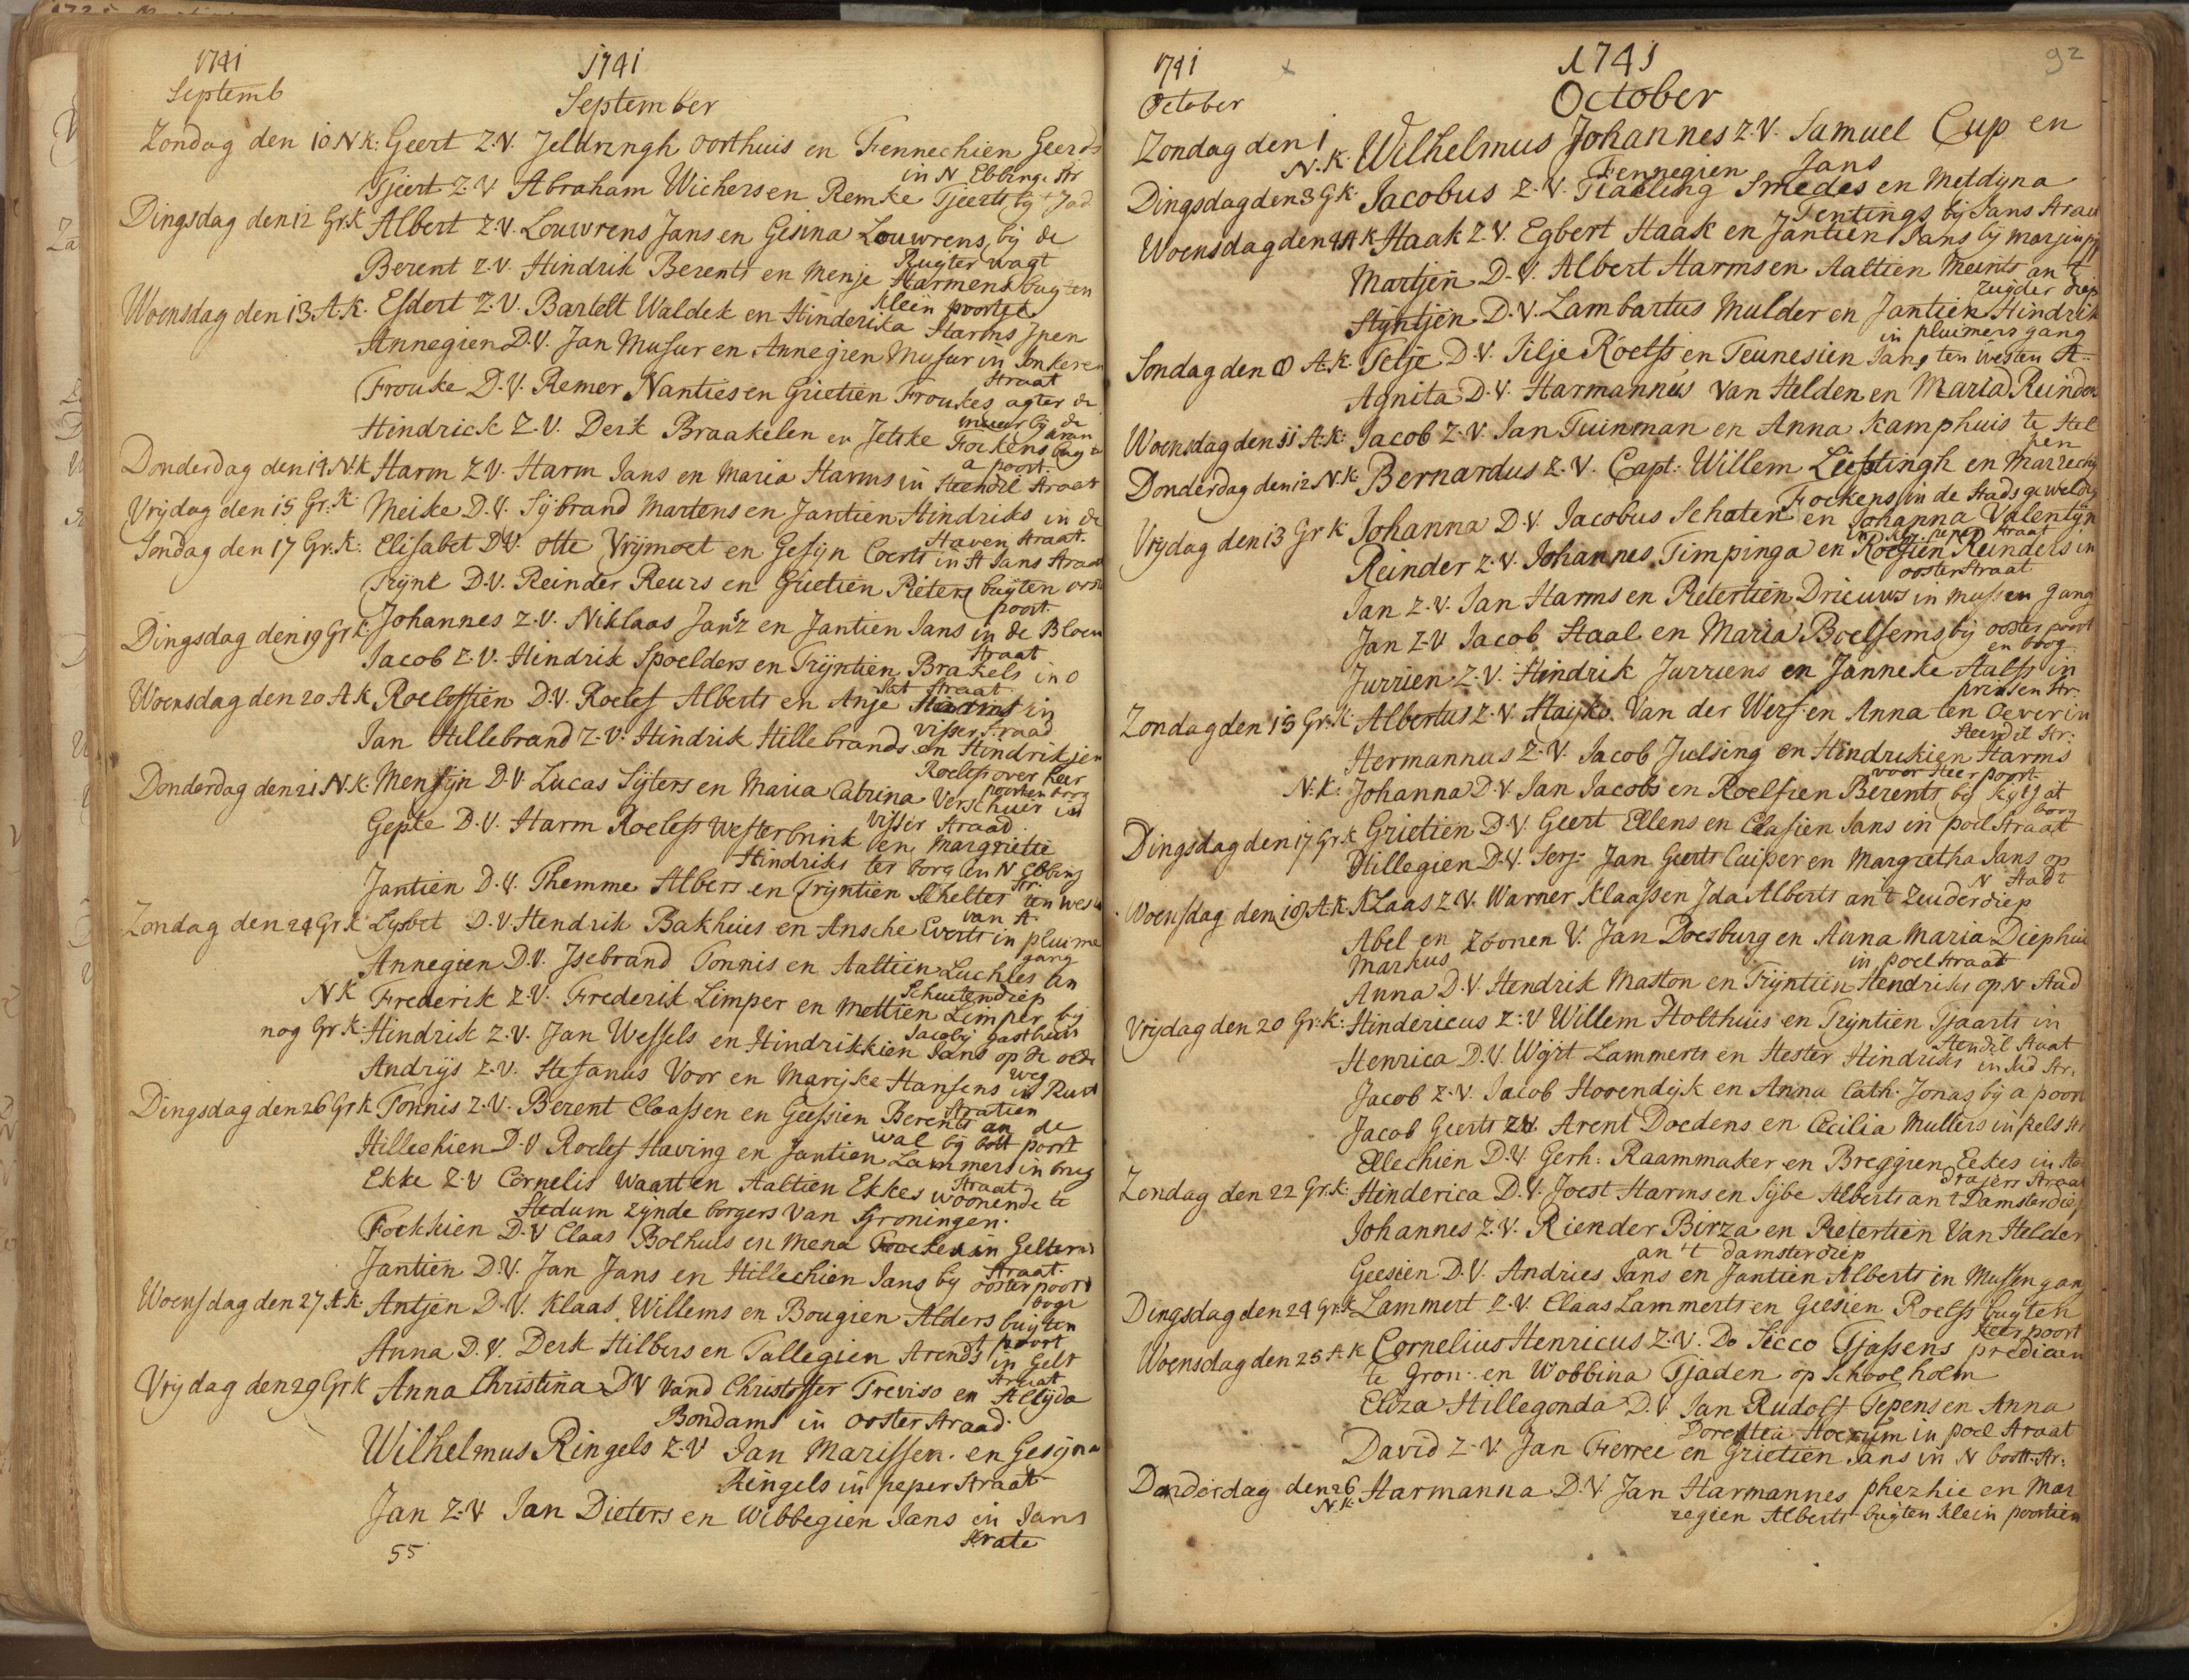 1741
1741
Septemb
September
Zondag den 10 N K: Geert Z.V. Jeldringh oorthuis en Fennechien Geerds
in N Ebbinge str
Tjeert Z.V Abraham Wichers en Remke Tjeerts bij Jad
Dingsdag den 12 Gr.K Albert Z.V. Louwrens Jans en Gesina Louwrens, bij de
Ruyter wagt
Berent Z.V. Hindrik Berents en Menje Harmens buyten
Klein poortje
Woensdag den 13 A.K. Esdert Z.V. Bartelt Waldek en Hinderika Harms
Annegien D.V. Jan Musur en Annegien Musur in Jonkeren
Straat
Frouke D.V. Remer Nanties en Grietien Froukes agter de
muur bij de
Hindrick Z.V. Derk Braakelen en Jetske Fockens
a poort.
Donderdag den 14 N.K Harm Z V. Harm Jans en Maria Harms in Steendil Straat
Vrijdag den 15 Gr.K Meike D.V. Sijbrand Martens en Jantien Hindriks in de
Haven Straat.
Sondag den 17 Gr.K: Elisabet D.V. Otte Vrijmoet en Gesijn Coerts in St Jans Straat
Trijnt D.V. Reinder Reurs en Grietien Pieters buyten
poort
Dingsdag den 19 Gr K Johannes Z.V. Niklaas Jansz en Jantien Jans in de Bloem
Straat
Jacob Z.V. Hindrik Spoelders en Trijntien Brakels in O
Straat
Woensdag den 20 A K Roelefftien D.V. Roelef Alberts en Anje Harms in
visser straad
Jan Hillebrand Z.V. Hindrik Hillebrands en Hindrikjen
Roelefs over heer
poorten borg
Donderdag den 21 N.K: Mensijn D.V Lucas Sijters en Maria Catrina Verschuir in
Visser Straad
Gepke D.V. Harm Roelefs Westerbrink en Margriette
Hindriks ter borg in N Ebbing
str:
Jantien D.V. Themme Albers en Trijntien Schelter ten west
van A.
Zondag den 24 Gr K Lysbet D.V. Hendrik Bakhuis en Ansche Everts in pluime
gang
Annegien D.V. Isebrand Tonnis en Aaltien Luchles an
Schuitendiep
N K Frederik Z.V. Frederik Limper en Mettien Limper bij
Jacobij gasthuis
nog Gr K: Hindrik Z.V. Jan Wessels en Hindrikkien Jans op de oede
weg
Andrijs Z.V. Stefanus Voor en Marijke Hansens in Rust
Stratien
Dingsdag den 26 Gr K Tonnis Z.V. Berent Claassen en Geessien Berents an de
wal bij bott poort
Hillechien D.V Roelef Having en Jantien Lammers in brug
Straat
Ekke Z.V Cornelis Waart en Aaltien Ekkes woonende te
Stedum zijnde borgers van Groningen.
Fockkien D.V Claas Bolhuis en Mena Fockes in Gelkens
Straat.
Jantien D.V. Jan Jans en Hillechien Jans bij ooster poort
boge
Woensdag den 27 A K Antjen D.V. Klaas Willems en Bougien Alders buyten
A poort
Anna D.V. Derk Hilbers en Tallegien Arends in Gelk
Straat
Vrijdag den 29 Gr K Anna Christina D V Vand Christoffer Treviso en Allijda
Bondams in Ooster Straad.
Wilhelmus Ringels Z.V Jan Marissen en Gesijna
Ringels in peper Straat
Jan Z.V Jan Dieters en Wibbegien Jans in Jans
Strate
55
1741
1741
92
October
October
Zondag den 1
N.K. Wilhelmus Johannes Z.V. Samuel Cup en
Fennegien Jans
Dingsdag den 3 G K. Jacobus Z.V. Smedes en Metdyna
Tentings bij Jans Straat
Woensdag den 4 A K Haak Z.V. Egbert Haak en Jantien Jans bij
Martjen D.V. Albert Harms en Aaltien Meints an't
Zuyder diep
Stijntjen D.V. Lambartus Mulder en Jantien Hindrik
in pluimers gang
Sondag den 8 A.K. Tetje D.V. Tilje Roelfs en Teunesien Jans ten Westen A
Agnita D.V. Harmannus Van Helden en Maria Reinders
Woensdag den 11 A.K: Jacob Z.V. Jan Tuinman en Anna Kamphuis te Hel
pen
Donderdag den 12 N.K: Bernardus Z.V. Capt: Willem Lieftingh en Marrechij
Fockens in de Stads geweldig
Vrijdag den 13 Gr K Johanna D.V. Jacobus Schaten en Johanna Valentijn
in Kl. peper Straat
Reinder Z.V. Johannes Timpinga en Roelfien Reinders in
ooster Straat
Jan Z.V. Jan Harms en Pietertien Drieuws in mussen gang
Jan Z.V Jacob Staal en Maria Boelsems bij ooster poort
en boog
Jurrien Z.V. Hindrik Jurriens en Janneke Aalfs in
prinsen str.
Zondag den 15 Gr.K: Albertus Z.V. Hayko Van der Werf en Anna ten Oever in
Steendil Str:
Hermannus Z.V. Jacob Julsing en Hindrikien Harms
voor Heer poort.
N.K: Johanna D.V. Jan Jacobs en Roelfien Berents bij Kijk j at
borg
Dingsdag den 17 Gr K Grietien D.V. Geert Ellens en Elasien Jans in poel Straat
Hillegien D.V. Serj: Jan Geerts Cuiper en Margretha Jans op
N Stadt
Woensdag den 18 A.K. Klaas Z.V. Warner Klaassen Ida Alberts an't Zuiderdiep
Abel en
Markus Zoonen V. Jan Doesburg en Anna Maria Diephui
in poel Straat
Anna D.V. Hendrik Maston en Trijntien Hendriks op N. Stad
Vrijdag den 20 Gr.K: Hindericus Z:V Willem Holthuis en Trijntien Tjaarts in
Stendil Staat
Henrica D.V. Wijrt Lammerts en Hester Hindriks in Str.
Jacob Z.V. Jacob Hovendijk en Anna Cath. Jonas bij a poort
Jacob Geerts Z.V. Arent Doedens en Cecilia Mullers in pels str
Ellechien D.V Gerh: Raammaker en Breggien Eekes in
drajers Straat
Zondag den 22 Gr.K: Hinderica D.V. Joest Harms en Sijbe Alberts an 't Damsterdiep
Johannes Z.V. Riender Birza en Pietertien Van Helder
an 't damsterdiep
Geesien D.V. Andries Jans en Jantien Alberts in Mussengang
Dingsdag den 24 Gr.K Lammert Z.V. Claas Lammerts en Geesien Roelfs buyten
Heer poort
Woensdag den 25 A K Cornelius Henricus Z.V. Do Sicco Tjassens predicant
te Gron: en Wobbina Tjaden op School holm
Eliza Hillegonda D.V Jan Rudolf Tepens en Anna
Dorothea Stoerum in poel Straat
David Z.V. Jan Fierree en Grietien Jans in N bott. Str:
Donderdag den 26
N K: Harmanna D.V Jan Harmannes phezhie en Mar
regien Alberts buyten klein poortien